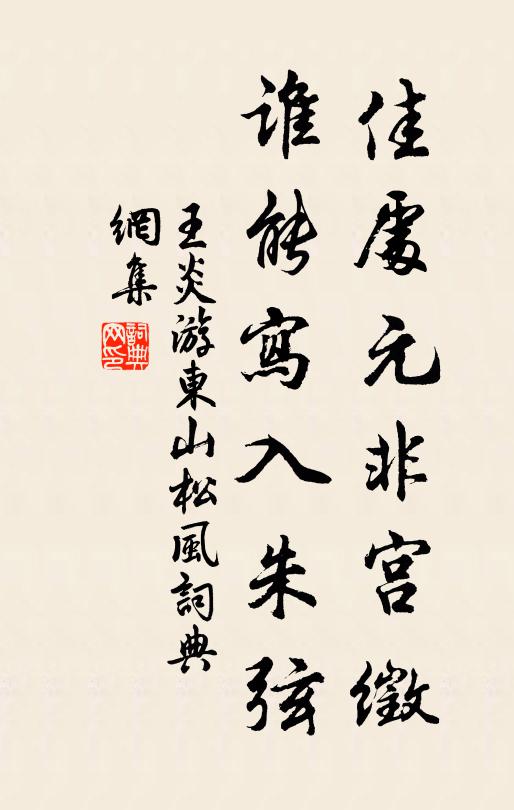 佳處元非宫徵
谁能寫入朱弦
王炎游東山松風詞典
網集
詞典网印